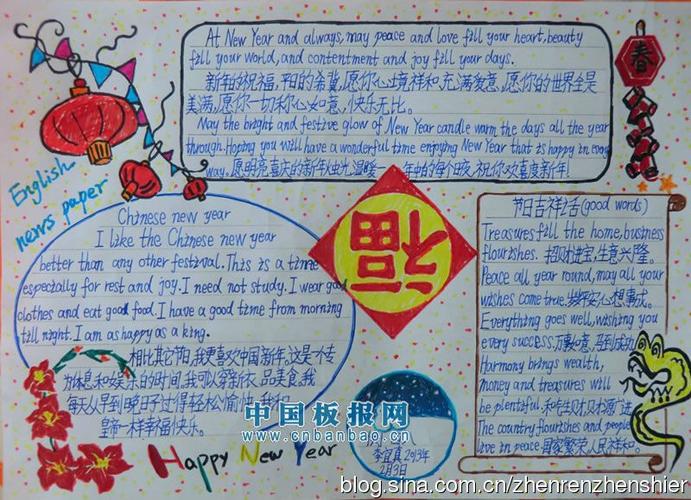 At New Year and always, may peace and love fill your heart, beauty
fill your world, and contentment and joy fill your days.
新年的祝福,平日的希冀,愿你心境祥和充满爱意,愿你的世界全是
美满,愿你一切称心如意,快乐无比。
May the bright and festive glow of New Year candle warm the days all the year
through. Hoping you will have a wonderful time enjoying New Year that is happy in every
way. 愿明亮喜庆的新年烛光温暖一年中的每个日夜,祝你欢喜度新年
春
English
news paper
Chinese new year
I like the Chinese new year
better than any other festival. This is a time
especially for rest and joy. I need not study. I wear good
clothes and eat good food. I have a good time from morning
till night. I am as happy as a king.
相比其它节,我更喜欢中国新年,这是个专
为休息和娱乐的时间,我可以穿新衣、品美食,我
每天从早到晚日子过得轻松愉快,
皇帝一样幸福快乐。
福
节日吉祥话(good words)
Treasures fill the home, business
flourishes. 招财进宝,生意兴隆。
Peace all year round, may all your
wishes come true. 岁岁平安,心想事成。
Everything goes well, wishing you
every success. 万事如意,马到成功
Harmony brings wealth,
money and treasures will
be plentiful. 和气生财,财源广进
The country flourishes and people
live in peace. 国家繁荣,人民祥和。
Happy New Year
李宜真2013年
2月3日
中国板报网
www.cnbanbao.cn
blog.sina.com.cn/zhenrenzhenshier